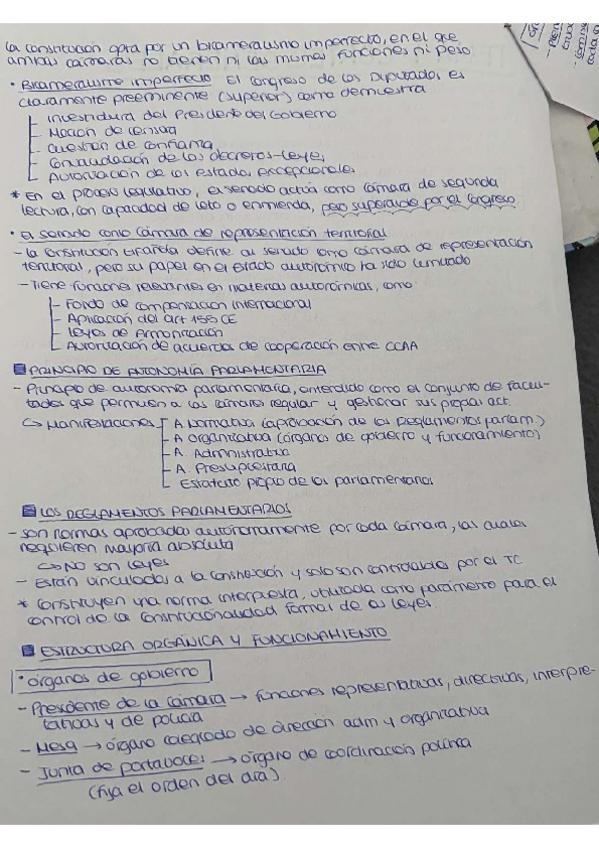 La constitución opta por un bicameralismo imperfecto, en el que
ambas cámaras no tienen ni las mismas funciones ni peso
• Bicameralismo imperfecto El Congreso de los Diputados es
claramente preeminente (superior) como demuestra
Investidura del Presidente del Gobierno
Moción de censura
Cuestión de confianza
Convalidación de los decretos-leyes
Autorización de los estados excepcionales
* En el proceso legislativo, el senado actúa como cámara de segunda
lectura, con capacidad de veto o enmienda, pero superable por el Congreso
• El senado como cámara de representación territorial
- La Constitución Española define al senado como cámara de representación
territorial, pero su papel en el Estado autonómico ha sido limitado
- Tiene funciones relevantes en materias autonómicas, como
Fondo de compensación internacional
Aplicación del art 155 CE
Leyes de Armonización
Autorización de acuerdos de cooperación entre CCAA
PRINCIPIO DE AUTONOMÍA PARLAMENTARIA
- Principio de autonomía parlamentaria, entendido como el conjunto de facul-
tades que permiten a las cámaras regular y gestionar sus propias act.
↪ Manifestaciones
A. Normativa (aprobación de los Reglamentos parlam.)
A. Organizativa (órganos de gobierno y funcionamiento)
A. Administrativa
A. Presupuestaria
Estatuto propio de los parlamentarios
LOS REGLAMENTOS PARLAMENTARIOS
- Son normas aprobadas autónomamente por cada cámara, las cuales
requieren mayoría absoluta
↪ No son leyes
- Están vinculados a la constitución y solo son controlables por el TC
* Constituyen una norma interpuesta, utilizada como parámetro para el
control de la constitucionalidad formal de las leyes.
ESTRUCTURA ORGÁNICA Y FUNCIONAMIENTO
• Órganos de gobierno
- Presidente de la cámara → funciones representativas, directivas, interpre-
tativas y de policía
- Mesa → órgano colegiado de dirección adm y organizativa
- Junta de portavoces → órgano de coordinación política
(fija el orden del día)